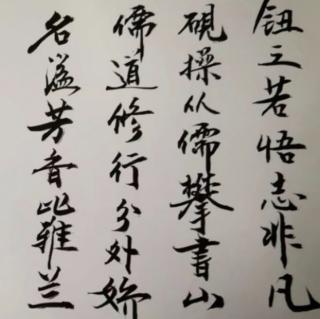 钮立若悟志非凡
砚操从儒攀書山
儒道修行分外娇
名溢芳香比雅兰